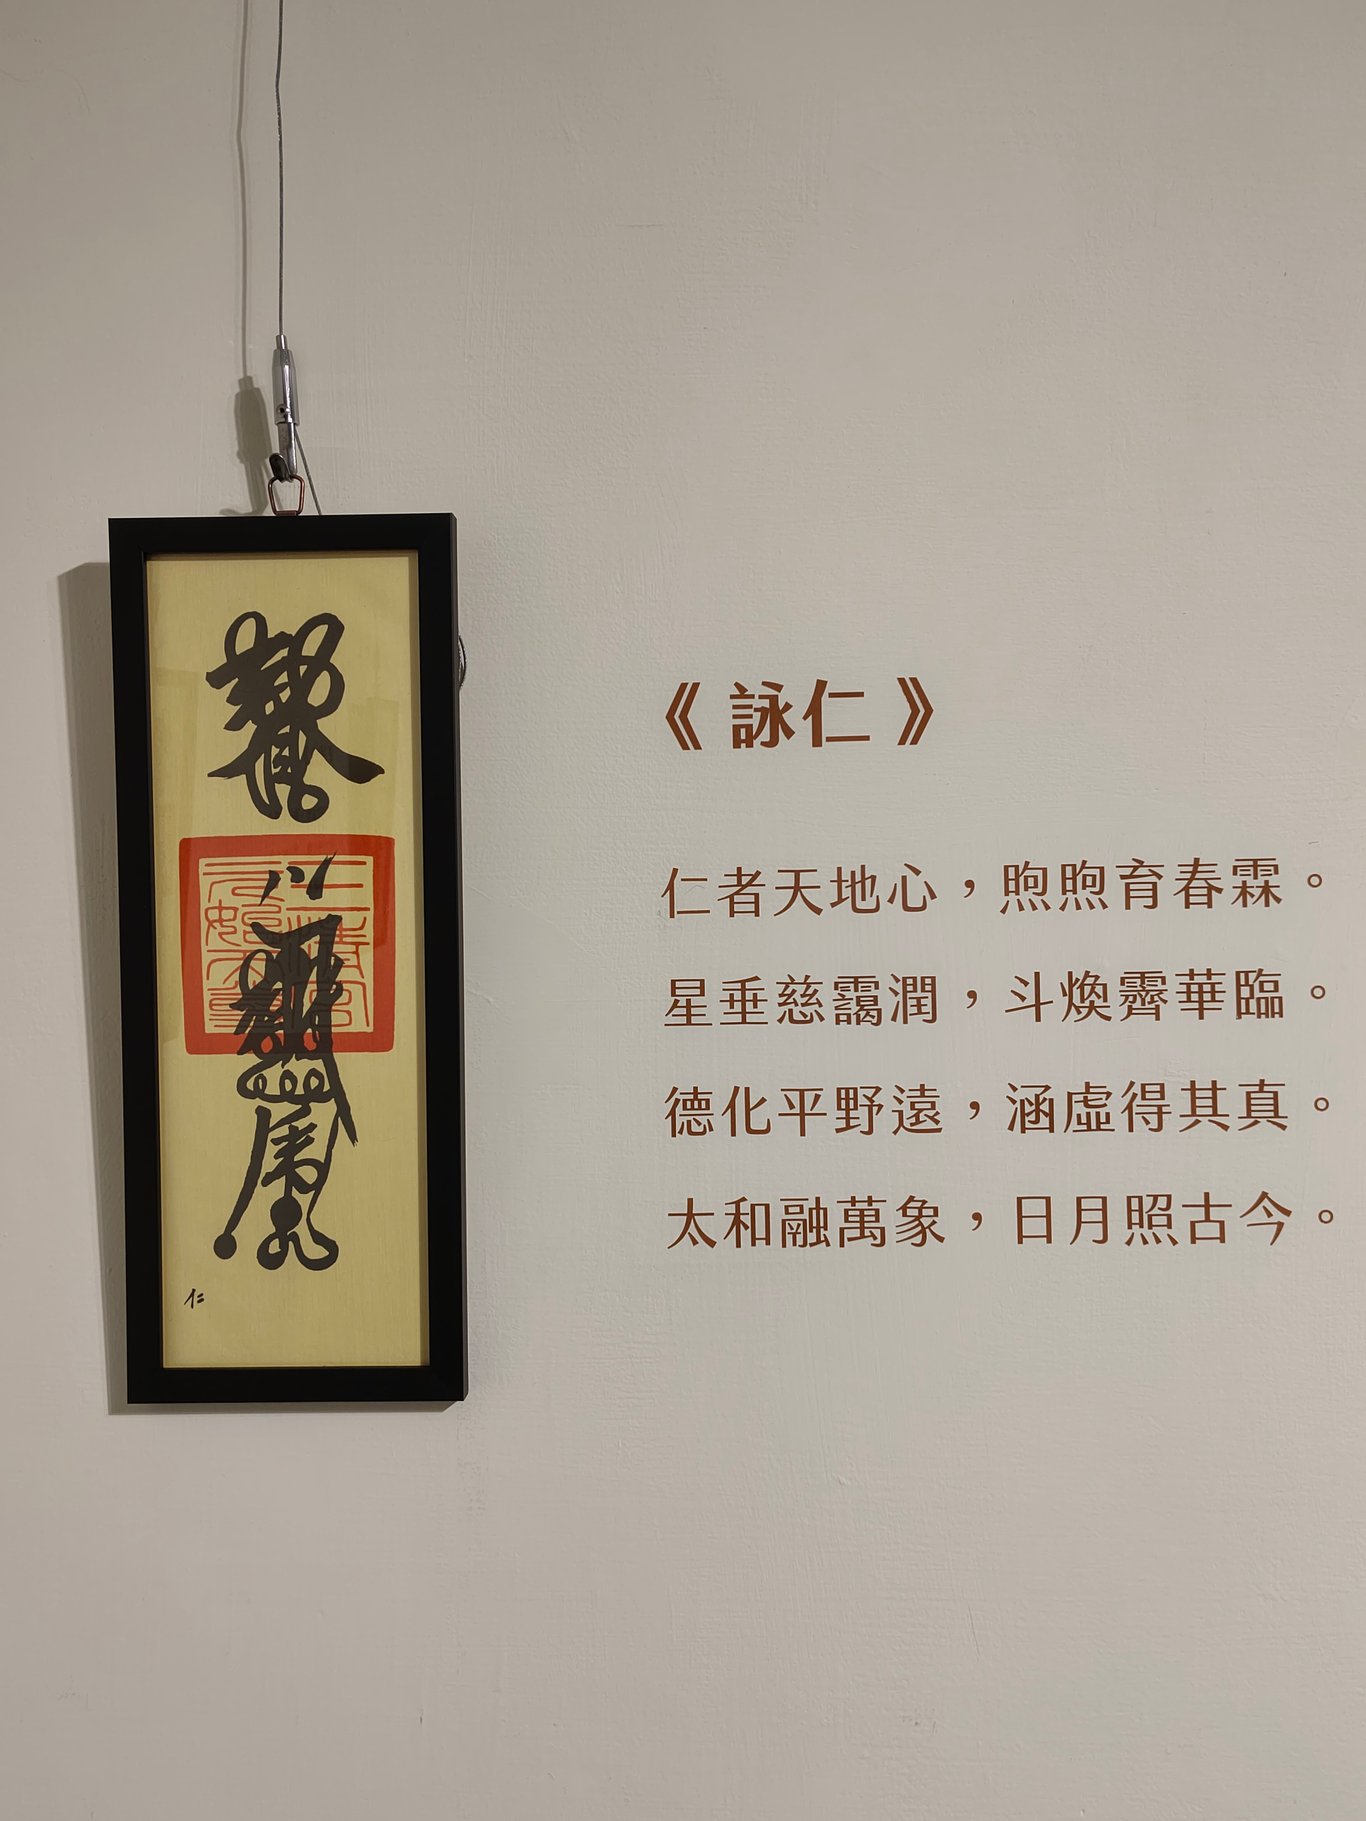 《詠仁》
仁者天地心，煦煦育春霖。
星垂慈靄潤，斗煥霽華臨。
德化平野遠，涵虛得其真。
太和融萬象，日月照古今。
仁